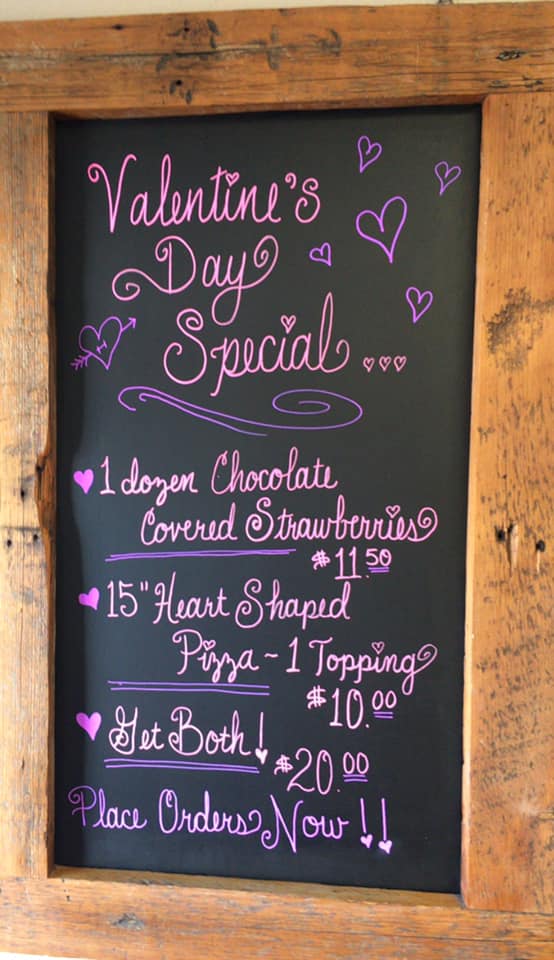 Valentine's
Day
Special...
1 dozen Chocolate
Covered Strawberries
$11.50
15" Heart Shaped
Pizza - 1 Topping
$10.00
Get Both!
$20.00
Place Orders Now!!